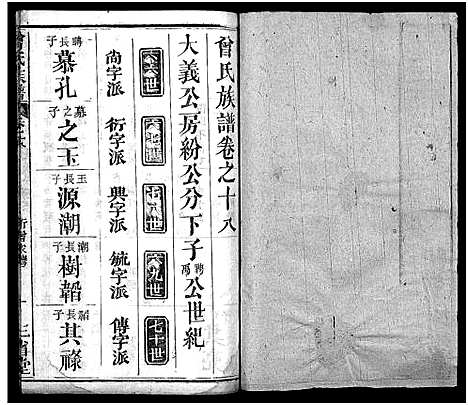 曾氏族譜卷之十八
大義公房紛公分下子聘禹公世紀
六六世
六七世
六八世
六九世
七十世
尚字派
衍字派
興字派
毓字派
傳字派
聘長子
慕孔
慕之子
之玉
玉長子
源潮
潮長子
樹韜
韜長子
其祿
曾氏族譜
三省堂